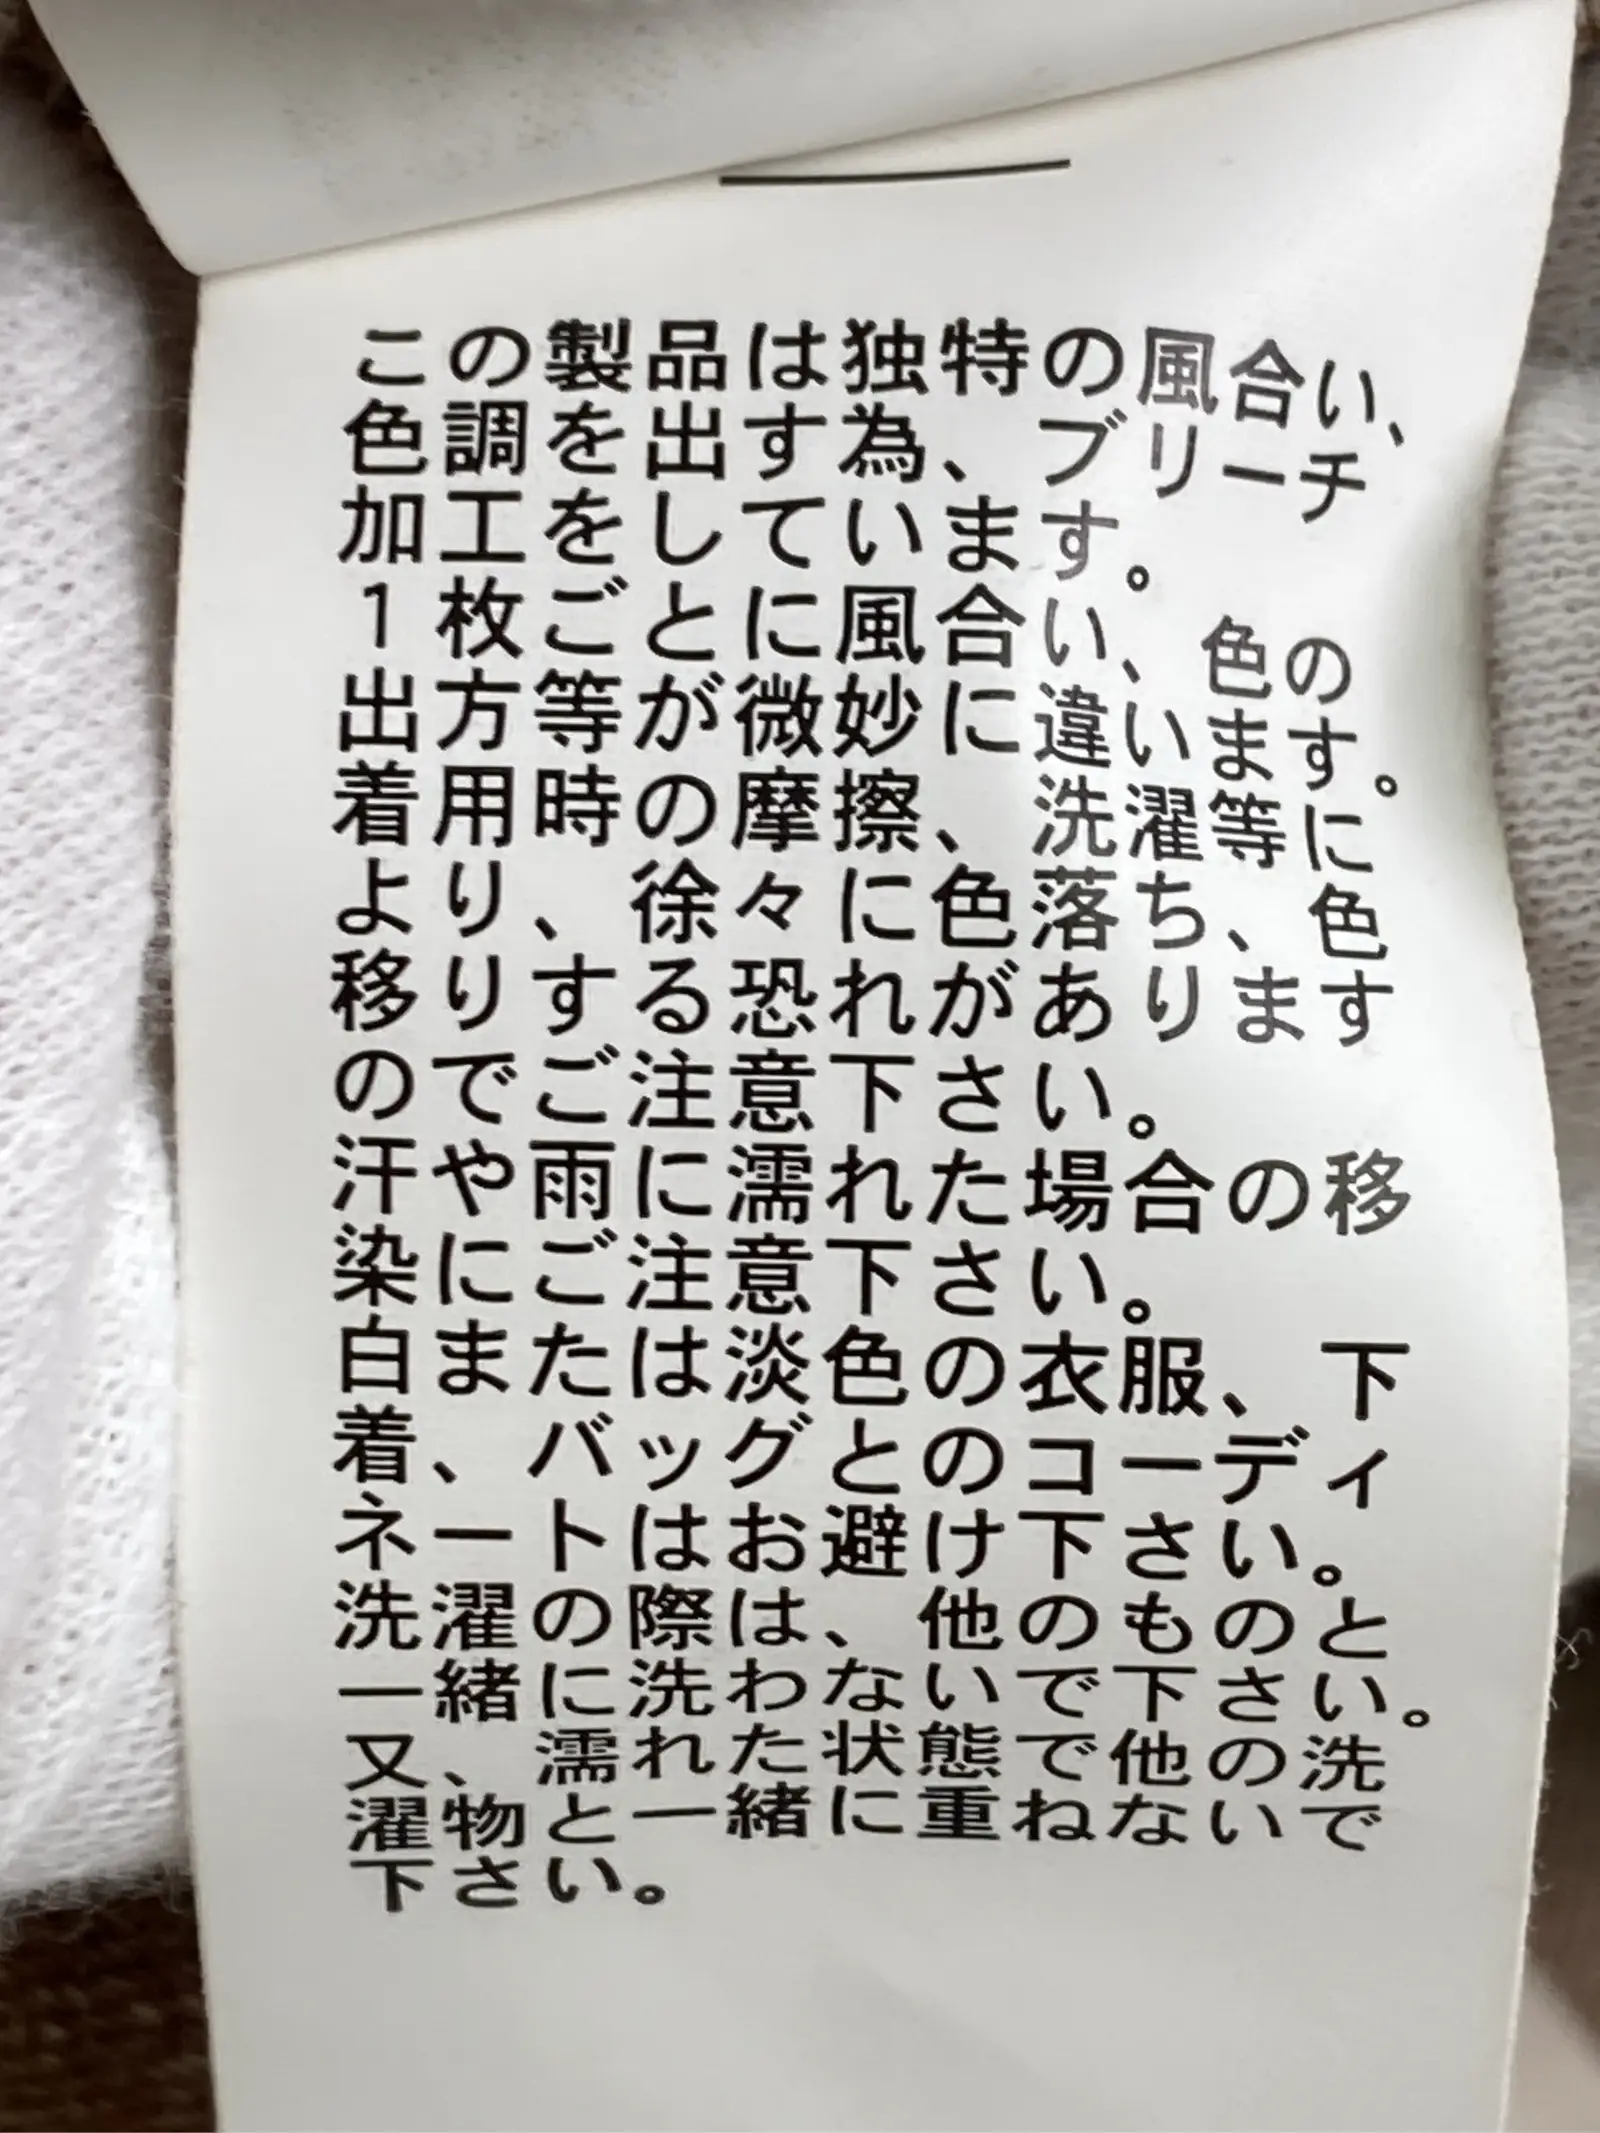 この製品は独特の風合い、
色調を出す為、ブリーチ
加工をしています。
1枚ごとに風合い、色の
出方等が微妙に違います。
着用時の摩擦、洗濯等に
より、徐々に色落ち、色
移りする恐れがあります
のでご注意下さい。
汗や雨に濡れた場合の移
染にご注意下さい。
白または淡色の衣服、下
着、バッグとのコーディ
ネートはお避け下さい。
洗濯の際は、他のものと
一緒に洗わないで下さい。
又、濡れた状態で他の洗
濯物と一緒に重ねないで
下さい。